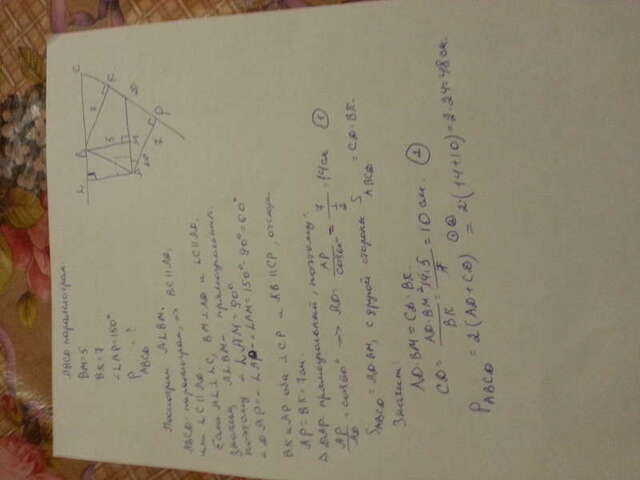 ABCD параллелограм
BM=5
BK=7
∠LAP=150°
P ABCD - ?
Построим ALBM.
ABCD-параллелограм, => BC || AD,
или LC || AD.
Если AL⊥LC, BM⊥AD и LC||AD,
значит ALBM- прямоугольник,
поэтому ∠LAM=90°
∠DAP=∠LAP-∠LAM=150°-90°=60°
BK и AP оба ⊥CP и AB||CP, отсюда
AP=BK=7см.
△DAP-прямоугольный, поэтому:
AP/AD=cos60° => AD= AP/cos60° = 7/(1/2) =14см ①
S ABCD = AD·BM, с другой стороны S ABCD = CD·BK.
Значит:
AD·BM=CD·BK.
CD= AD·BM/BK = 14·5/7 =10 см. ②
P ABCD = 2(AD+CD) ①② = 2·(14+10)=2·24=48см.
L
B
C
2
K
5
A
M
D
60
7
P